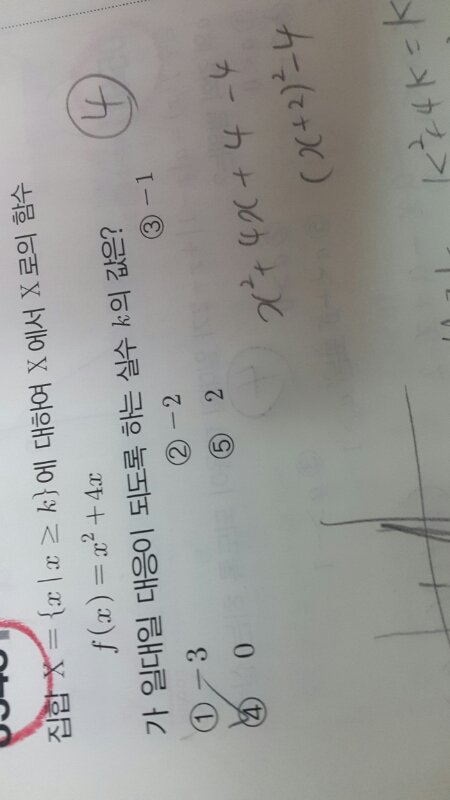 집합 X = {x | x ≥ k}에 대하여 X에서 X로의 함수
f(x) = x² + 4x
가 일대일 대응이 되도록 하는 실수 k의 값은?
① -3 ② -2 ③ -1
④ 0 ⑤ 2
④
x² + 4x + 4 - 4
(x+2)² - 4
k² + 4k = k